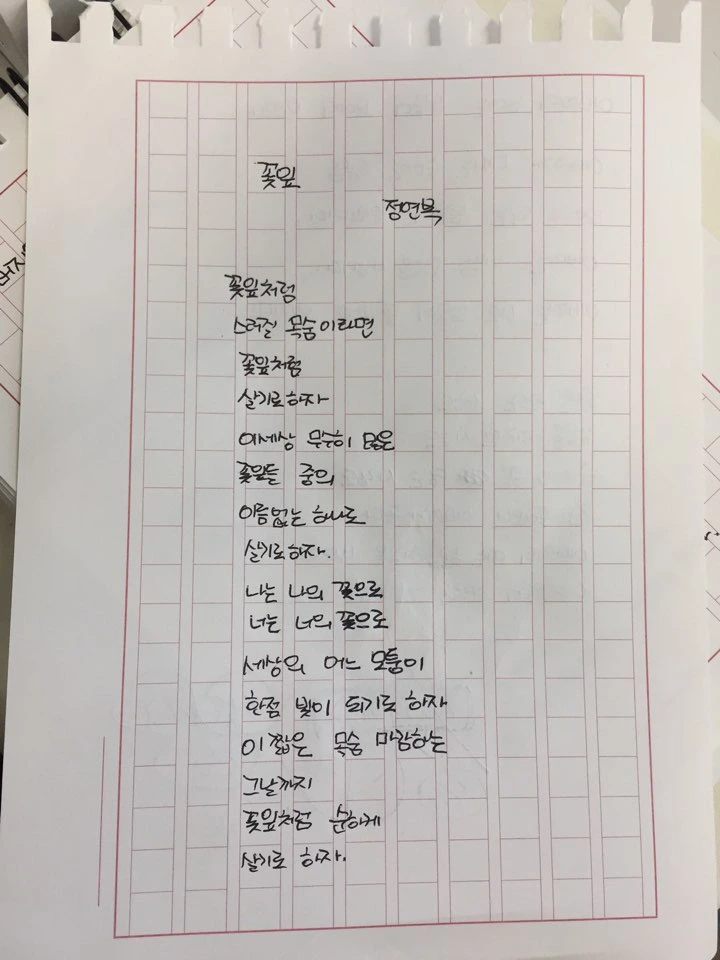 꽃잎
정연복
꽃잎처럼
스러질 목숨이라면
꽃잎처럼
살기로하자
이세상 무수히 많은
꽃잎들 중의
이름없는 하나로
살기로하자.
나는 나의 꽃으로
너는 너의 꽃으로
세상의 어느 모퉁이
한점 빛이 되기로 하자
이 짧은 목숨 마감하는
그날까지
꽃잎처럼 순하게
살기로 하자.